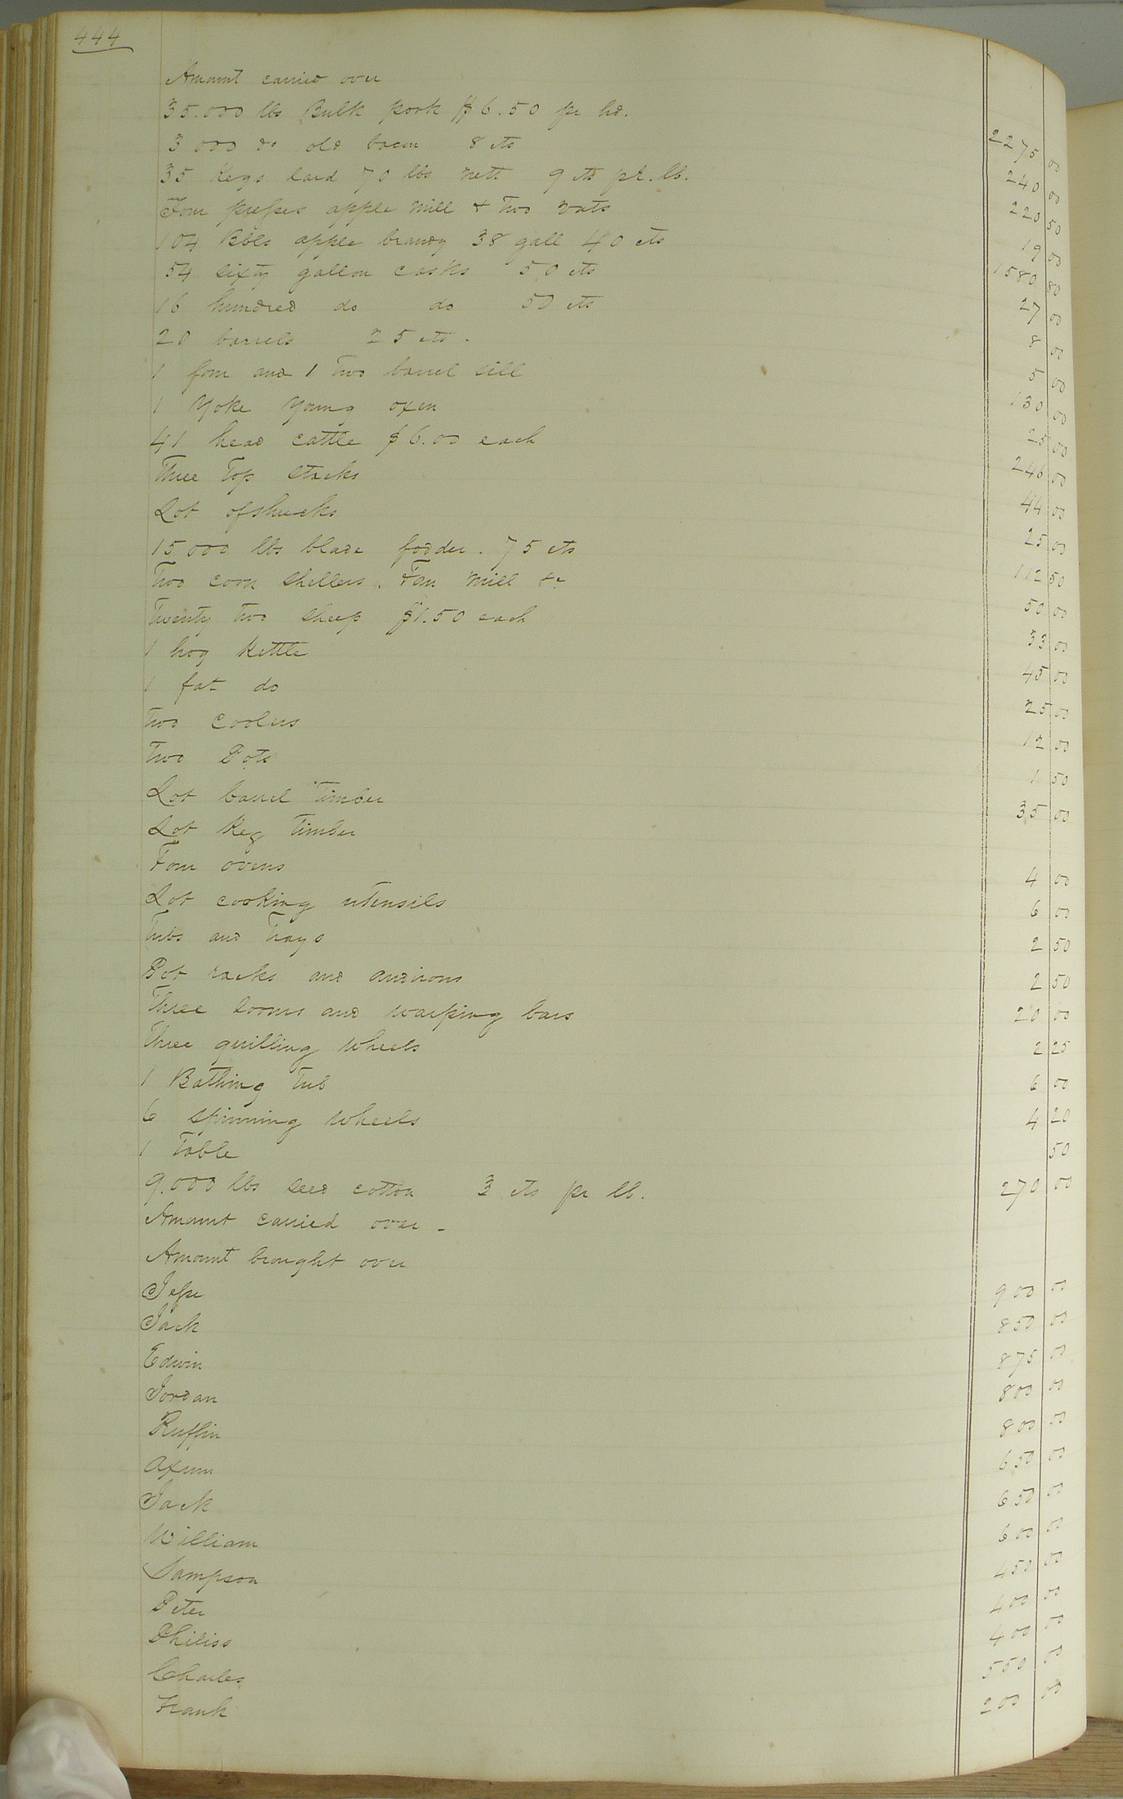 444
Amount carried over
35.000 lbs Bulk pork $6.50 pr hd. 2275 00
3 000 do old bacon 8 cts 240 00
35 Kegs lard 70 lbs nett 9 cts pr. lb. 220 50
Four presses apple mill & two vats 19 00
104 Bbls apple brandy 38 gall 40 cts 1580 80
54 sixty gallon casks 50 cts 27 00
16 hundred do do 50 cts 8 00
20 barrels 25 cts. 5 00
1 four and 1 two barrel still 130 00
1 Yoke Young oxen 25 00
41 head cattle $6.00 each 246 00
Three Top stacks 44 00
Lot of shucks 25 00
15.000 lbs blade fodder. 75 cts 112 50
Two corn shellers. Fan mill &c 50 00
Twenty two sheep $1.50 each 33 00
1 hog Kettle 45 00
1 fat do 25 00
Two coolers 12 00
Two Pots 1 50
Lot barrel Timber 35 00
Lot Keg Timber
Four ovens 4 00
Lot cooking utensils 6 00
Tubs and Trays 2 50
Pot racks and andirons 2 50
Three looms and warping bars 20 00
Three quilling wheels 2 25
1 Bathing Tub 6 00
6 spinning wheels 4 20
1 Table 50
9.000 lbs seed cotton 3 cts pr lb. 270 00
Amount carried over -
Amount brought over
Jesse 900 00
Jack 850 00
Edwin 875 00
Jordan 800 00
Ruffin 800 00
Axum 650 00
Jack 650 00
William 600 00
Sampson 450 00
Peter 400 00
Philiss 400 00
Charles 550 00
Frank 200 00